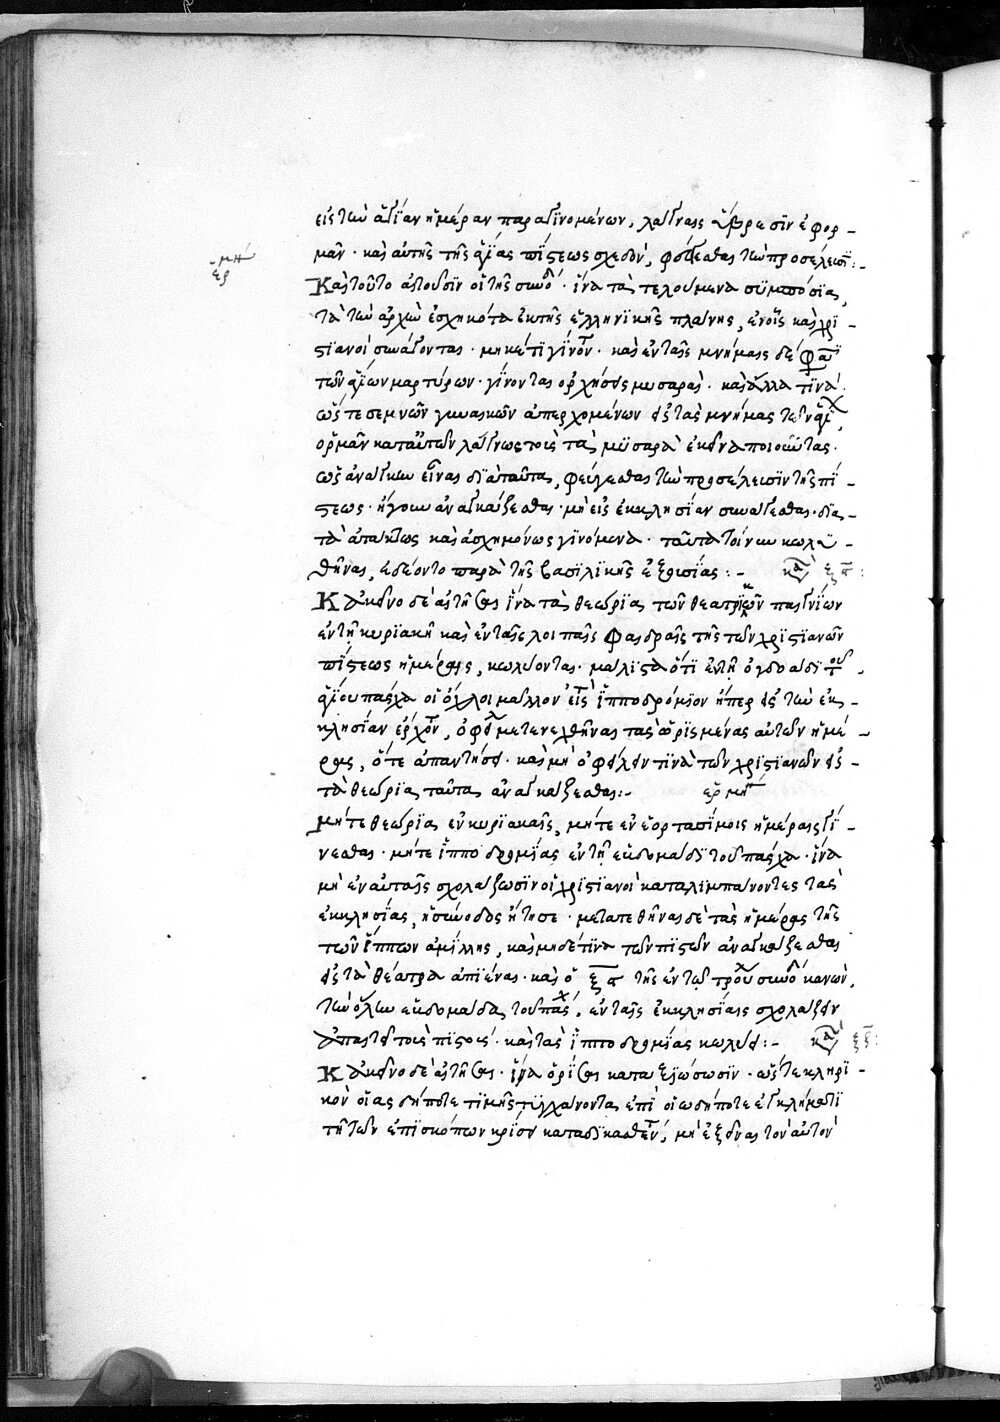 εἰς τὴν ἁγίαν ἡμέραν παραγινομένων, λάγναις ὕβρεσιν ἐφορ-
μᾶν· καὶ αὐτῆς τῆς ἁγίας πίστεως σχεδὸν, φεύγεσθαι τὴν προσέλευσιν:-
ἑρμη
Καὶ τοῦτο αἰτοῦσιν οἱ τῆς συνόδ· ἵνα τὰ τελούμενα συμπόσια,
τὰ τὴν ἀρχὴν ἐσχηκότα ἐκ τῆς ἑλληνικῆς πλάνης, ἐν οἷς καὶ χρι-
στιανοὶ συνάγονται· μηκέτι γίνον· καὶ ἐν ταῖς μνήμαις δέ φασι
τῶν ἁγίων μαρτύρων· γίνονται ὀρχήσεις μυσαραὶ· καὶ ἄλλα τινά·
ὥστε σεμνῶν γυναικῶν ἀπερχομένων εἰς τὰς μνήμας τῶν ἁγί,
ὁρμᾶν κατ' αὐτῶν λάγνως τοὺς τὰ μυσαρὰ ἐκεῖνα ποιοῦντας·
ὡς ἀνάγκην εἶναι διὰ ταῦτα, φεύγεσθαι τὴν προσέλευσιν τῆς πί-
στεως· ἤγουν ἀναγκάζεσθαι· μὴ εἰς ἐκκλησίαν συνάγεσθαι· διὰ
τὰ ἀτάκτως καὶ ἀσχημόνως γινόμενα· ταῦτα τοίνυν κωλυ-
θῆναι, ἐδέοντο παρὰ τῆς βασιλικῆς ἐξουσίας:- κα ξα:
Κἀκεῖνο δὲ αἰτῆσαι ἵνα τὰ θεώρια τῶν θεατρικῶν παιγνίων
ἐν τῇ κυριακῇ καὶ ἐν ταῖς λοιπαῖς φαιδραῖς τῆς τῶν χριστιανῶν
πίστεως ἡμέραις, κωλύονται· μάλιστα ὅτι ἐν τῇ ὀγδοάδι τοῦ
ἁγίου πάσχα οἱ ὄχλοι μᾶλλον εἰς ἱπποδρόμιον ἤπερ εἰς τὴν ἐκ-
κλησίαν ἔρχον, ὀφεί μετενεχθῆναι τὰς ὡρισμένας αὐτῶν ἡμέ-
ρας, ὅτε ἀπαντήσει· καὶ μὴ ὀφείλειν τινὰ τῶν χριστιανῶν εἰς
τὰ θεώρια ταῦτα ἀναγκάζεσθαι:- ἑρμη
Μήτε θεώρια ἐν κυριακαῖς, μήτε ἐν ἑορτασίμοις ἡμέραις γί-
νεσθαι· μήτε ἱπποδρομίας ἐν τῇ ἑβδομάδι τοῦ πάσχα· ἵνα
μὴ ἐν αὐταῖς σχολάζωσιν οἱ χριστιανοὶ καταλιμπάνοντες τὰς
ἐκκλησίας, ἡ σύνοδος ᾔτησε· μετατεθῆναι δὲ τὰς ἡμέρας τῆς
τῶν ἵππων ἁμίλλης, καὶ μηδέ τινα τῶν πιστῶν ἀναγκάζεσθαι
εἰς τὰ θέατρα ἀπιέναι· καὶ ὁ ξς τῆς ἐν τῷ τρούλ συνόδ κανὼν,
τὴν ὅλην ἑβδομάδα τοῦ πάσχ, ἐν ταῖς ἐκκλησίαις σχολάζειν
ἀπαιτεῖ τοὺς πιστούς· καὶ τὰς ἱπποδρομίας κωλύει:- κα ξβ:
Κἀκεῖνο δὲ αἰτῆσαι· ἵνα ὁρίσαι καταξιώσωσιν· ὥστε κληρι-
κὸν οἵας δήποτε τιμῆς τυγχάνοντα ἐπὶ οἱῳδήποτε ἐγκλήματι
τῇ τῶν ἐπισκόπων κρίσει καταδικασθέν, μὴ ἐξεῖναι τὸν αὐτὸν